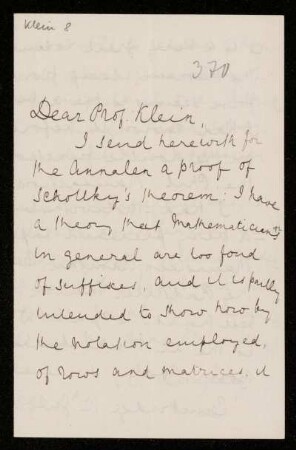 Klein 8
370
Dear Prof. Klein,
I send herewith for
the Annalen a proof of
Schottky's theorem: I have
a theory that Mathematicians
in general are too fond
of suffixes, and it is partly
intended to show how by
the notation employed,
of rows and matrices, it